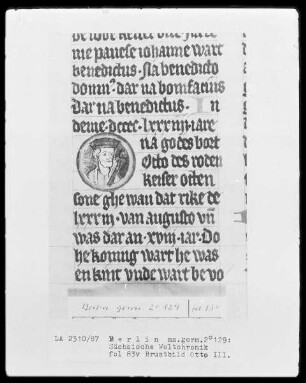 me pauese iohanne wart
benedictus. sta benedicto
domin9. dar na bonifacius
dar na benedictus. In
deme. dccc. lxxxiij. iare
na godes bort
Otto des roden
keiser otten
sone ghe wan dat rike de
lxxxiij. van augusto vñ
was dar an. xviij. iar. Do
he koning wart he was
en kint vnde wart be vo
Berlin germ. 2° 129
LA 2310/87 Berlin ms.germ.2°129:
Sächsische Weltchronik
fol 83v Brustbild Otto III.